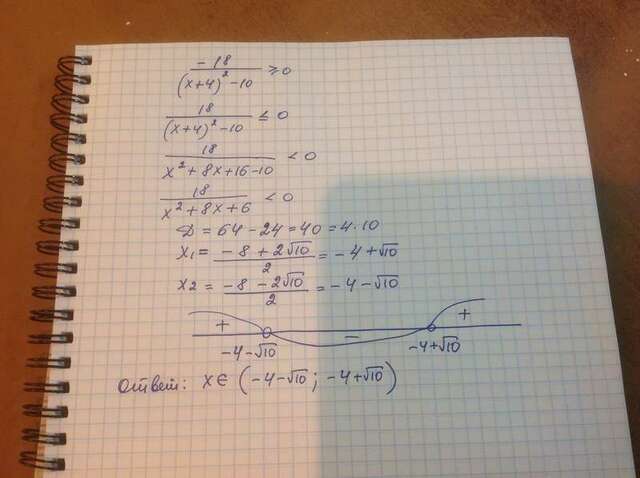 -18/((x+4)²-10) ≥ 0
18/((x+4)²-10) ≤ 0
18/(x²+8x+16-10) < 0
18/(x²+8x+6) < 0
D = 64 - 24 = 40 = 4·10
x₁ = (-8+2√10)/2 = -4+√10
x₂ = (-8-2√10)/2 = -4-√10
+ - +
-4-√10 -4+√10
Ответ: x∈(-4-√10; -4+√10)